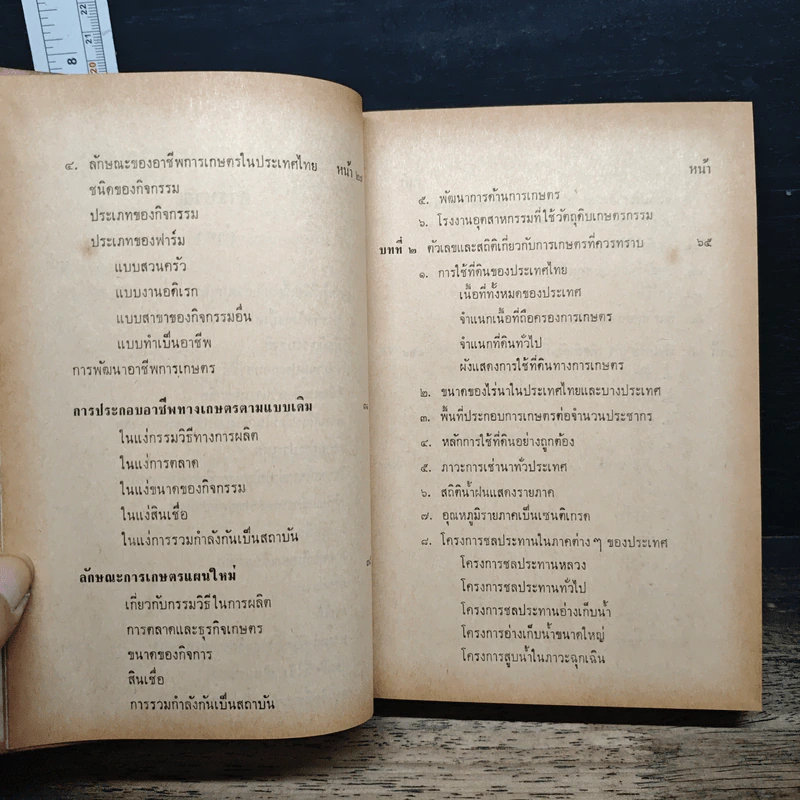 8
22
21
20
หน้า
๔. ลักษณะของอาชีพการเกษตรในประเทศไทย
ชนิดของกิจกรรม
ประเภทของกิจกรรม
ประเภทของฟาร์ม
แบบสวนครัว
แบบงานอดิเรก
แบบสาขาของกิจกรรมอื่น
แบบทำเป็นอาชีพ
การพัฒนาอาชีพการเกษตร
การประกอบอาชีพทางเกษตรตามแบบเดิม
ในแง่กรรมวิธีทางการผลิต
ในแง่การตลาด
ในแง่ขนาดของกิจกรรม
ในแง่สินเชื่อ
ในแง่การรวมกำลังกันเป็นสถาบัน
ลักษณะการเกษตรแผนใหม่
เกี่ยวกับกรรมวิธีในการผลิต
การตลาดและธุรกิจเกษตร
ขนาดของกิจการ
สินเชื่อ
การรวมกำลังกันเป็นสถาบัน
หน้า
๕. พัฒนาการด้านการเกษตร
๖. โรงงานอุตสาหกรรมที่ใช้วัตถุดิบเกษตรกรรม
บทที่ ๒ ตัวเลขและสถิติเกี่ยวกับการเกษตรที่ควรทราบ ๖๕
๑. การใช้ที่ดินของประเทศไทย
เนื้อที่ทั้งหมดของประเทศ
จำแนกเนื้อที่ถือครองการเกษตร
จำแนกที่ดินทั่วไป
ผังแสดงการใช้ที่ดินทางการเกษตร
๒. ขนาดของไร่นาในประเทศไทยและบางประเทศ
๓. พื้นที่ประกอบการเกษตรต่อจำนวนประชากร
๔. หลักการใช้ที่ดินอย่างถูกต้อง
๕. ภาวะการเช่านาทั่วประเทศ
๖. สถิติน้ำฝนแสดงรายภาค
๗. อุณหภูมิรายภาคเป็นเซนติเกรด
๘. โครงการชลประทานในภาคต่าง ๆ ของประเทศ
โครงการชลประทานหลวง
โครงการชลประทานทั่วไป
โครงการชลประทานอ่างเก็บน้ำ
โครงการอ่างเก็บน้ำขนาดใหญ่
โครงการสูบน้ำในภาวะฉุกเฉิน